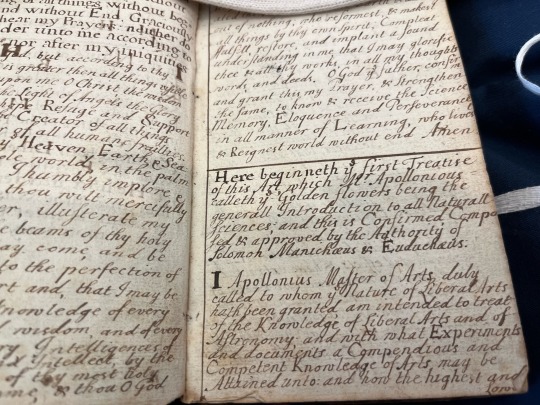 of all things without be-
and without End, Graciously
hear my Prayers; neither do
render unto me according to
nor after my iniquities
but according to thy
is greater then all things visible
upon me O Christ the wisdom
the Light of Angels the Glory
Refuge and Support
the Creator of all things
of all humane frailties
Heaven Earth & Sea
whole world in the palm
I humbly implore &
thou wilt mercifully
illustrate my
beams of thy holy
may come and be
to the perfection of
Art and, that I may be
Knowledge of every
wisdom, and of every
Intelligences of
Intellect by the
of thy most holy
name, & thou O God
out of nothing, who reformest, & makest
all things by thy own Spirit, Compleat
fulfill, restore, and implant a sound
understanding in me that I may glorifie
thee & all thy works, in all my thoughts
words, and deeds. O God y^e Father, confirm
and grant this my Prayer, & strengthen
the same, to know & receive the Science
Memory, Eloquence and Perseverance
in all manner of Learning, who livest
& Reignest world without end Amen
Here beginneth y^e first Treatise
of this Art, which M^r Apollonious
calleth y^e Golden Flowers being the
generall Introduction to all Naturall
Sciences; and this is Confirmed Compo
sed & approved by the Authority of
Solomon Manichæus & Euduchæus.
I Apollonius Master of Arts, duly
called to whom y^e Nature of Liberal Arts
hath been granted am intended to treat
of the Knowledge of Liberal Arts and of
Astronomy; and with what Experiments
and documents a Compendious and
Competent Knowledge of Arts, may be
Attained unto: and how the highest and
Lowe